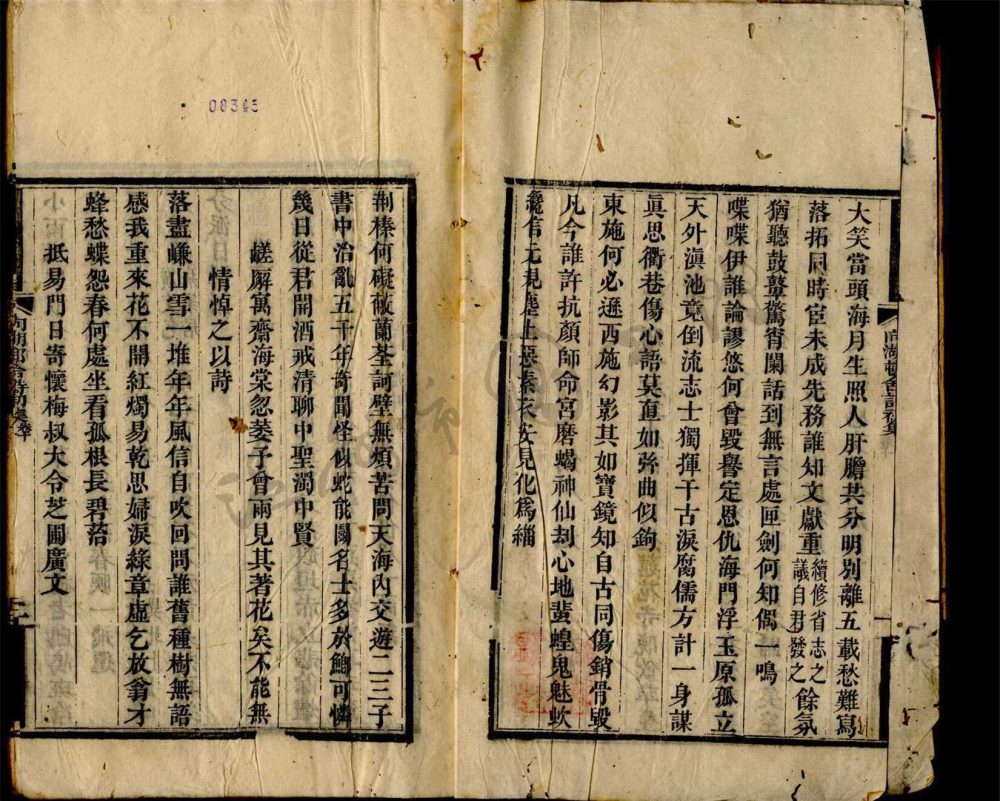 大笑當頭海月生照人肝膽共分明別離五載愁難寫
落拓同時宦未成先務誰知文獻重續修省志之議自君發之餘氛
猶聽鼓鼙驚宵闌話到無言處匣劍何知偶一鳴
喋喋伊誰論謬悠何曾毀譽定恩仇海門浮玉原孤立
天外滇池竟倒流志士獨揮千古淚腐儒方計一身謀
眞思衢巷傷心語莫直如弦曲似鉤
東施何必遜西施幻影其如寶鏡知自古同傷銷骨毀
凡今誰許抗顏師命宮磨蝎神仙刦心地蜚蝗鬼魅蚑
纔信元規塵上惡素衣安見化爲緇
荆榛何礙蔽蘭荃訶壁無煩苦問天海內交遊二三子
書中治亂五千年奇聞怪似蛇能鬭名士多於鯽可憐
幾日從君開酒戒淸聊中聖濁中賢
嵯廨寓齋海棠忽萎予曾兩見其著花矣不能無
情悼之以詩
落盡嵰山雪一堆年年風信自吹回問誰舊種樹無語
感我重來花不開紅燭易乾思婦淚綠章虛乞放翁才
蜂愁蝶怨春何處坐看孤根長碧苔
抵易門日寄懷梅叔大令芝圃廣文
08345